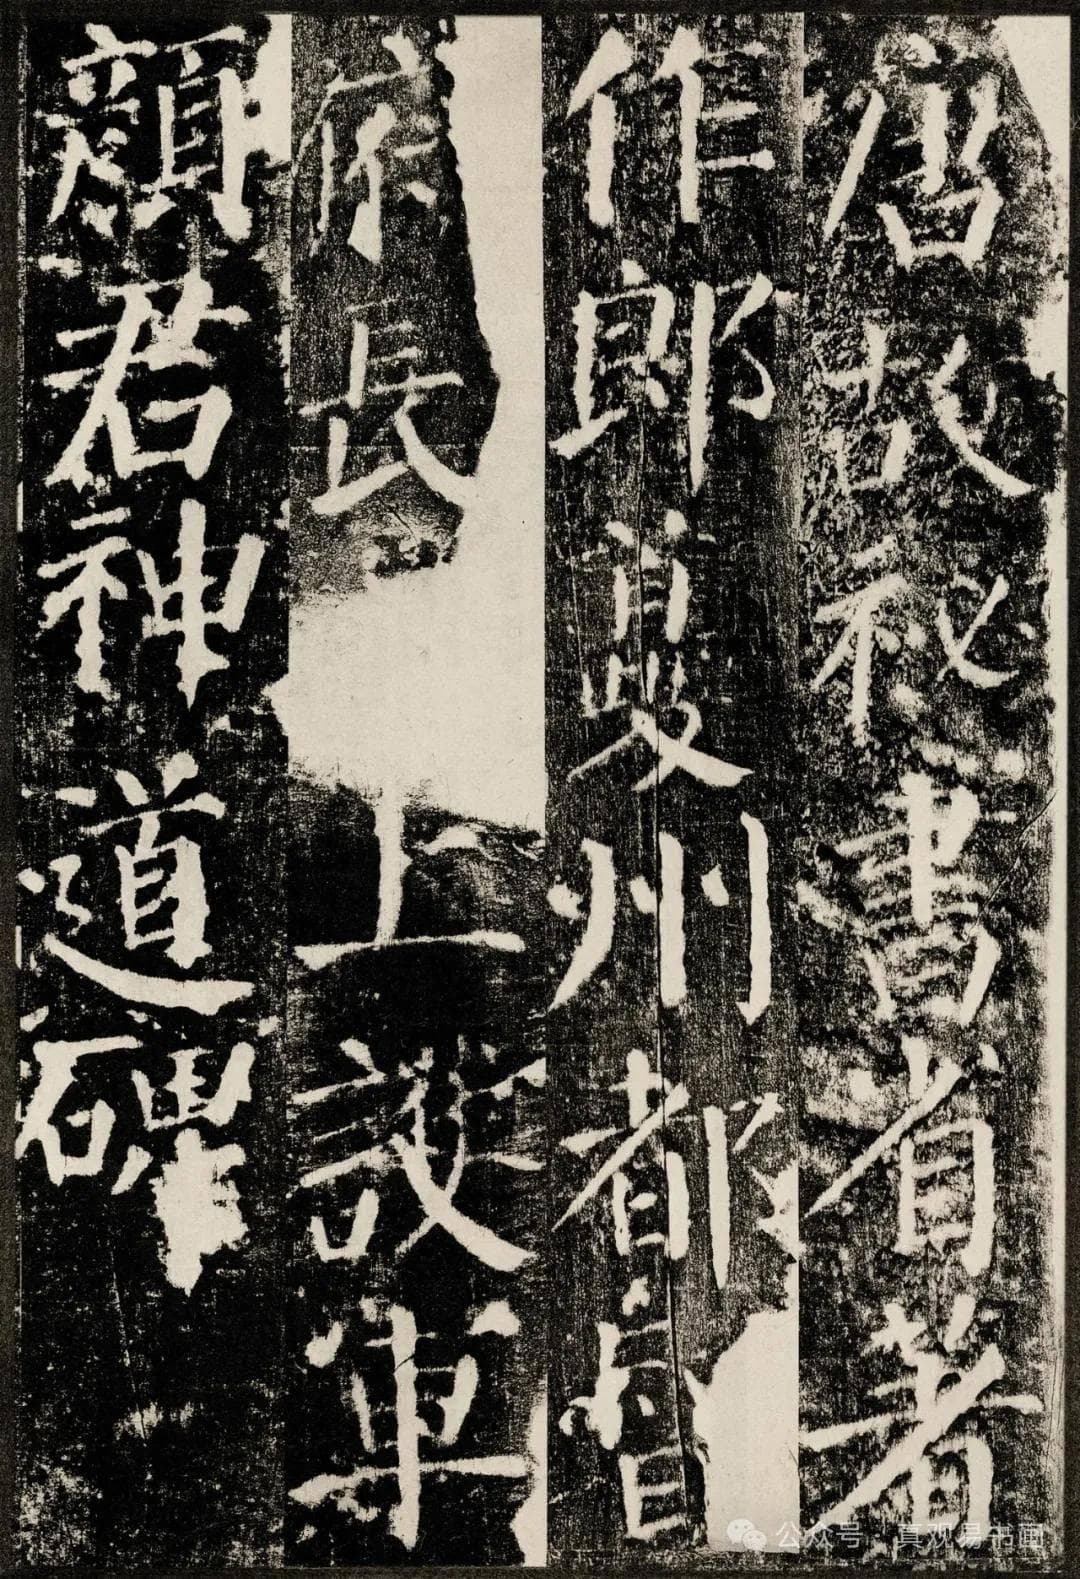 唐故祕書省著
作郎夔州都督
府長上護軍
顏君神道碑
公众号 · 真观易书画